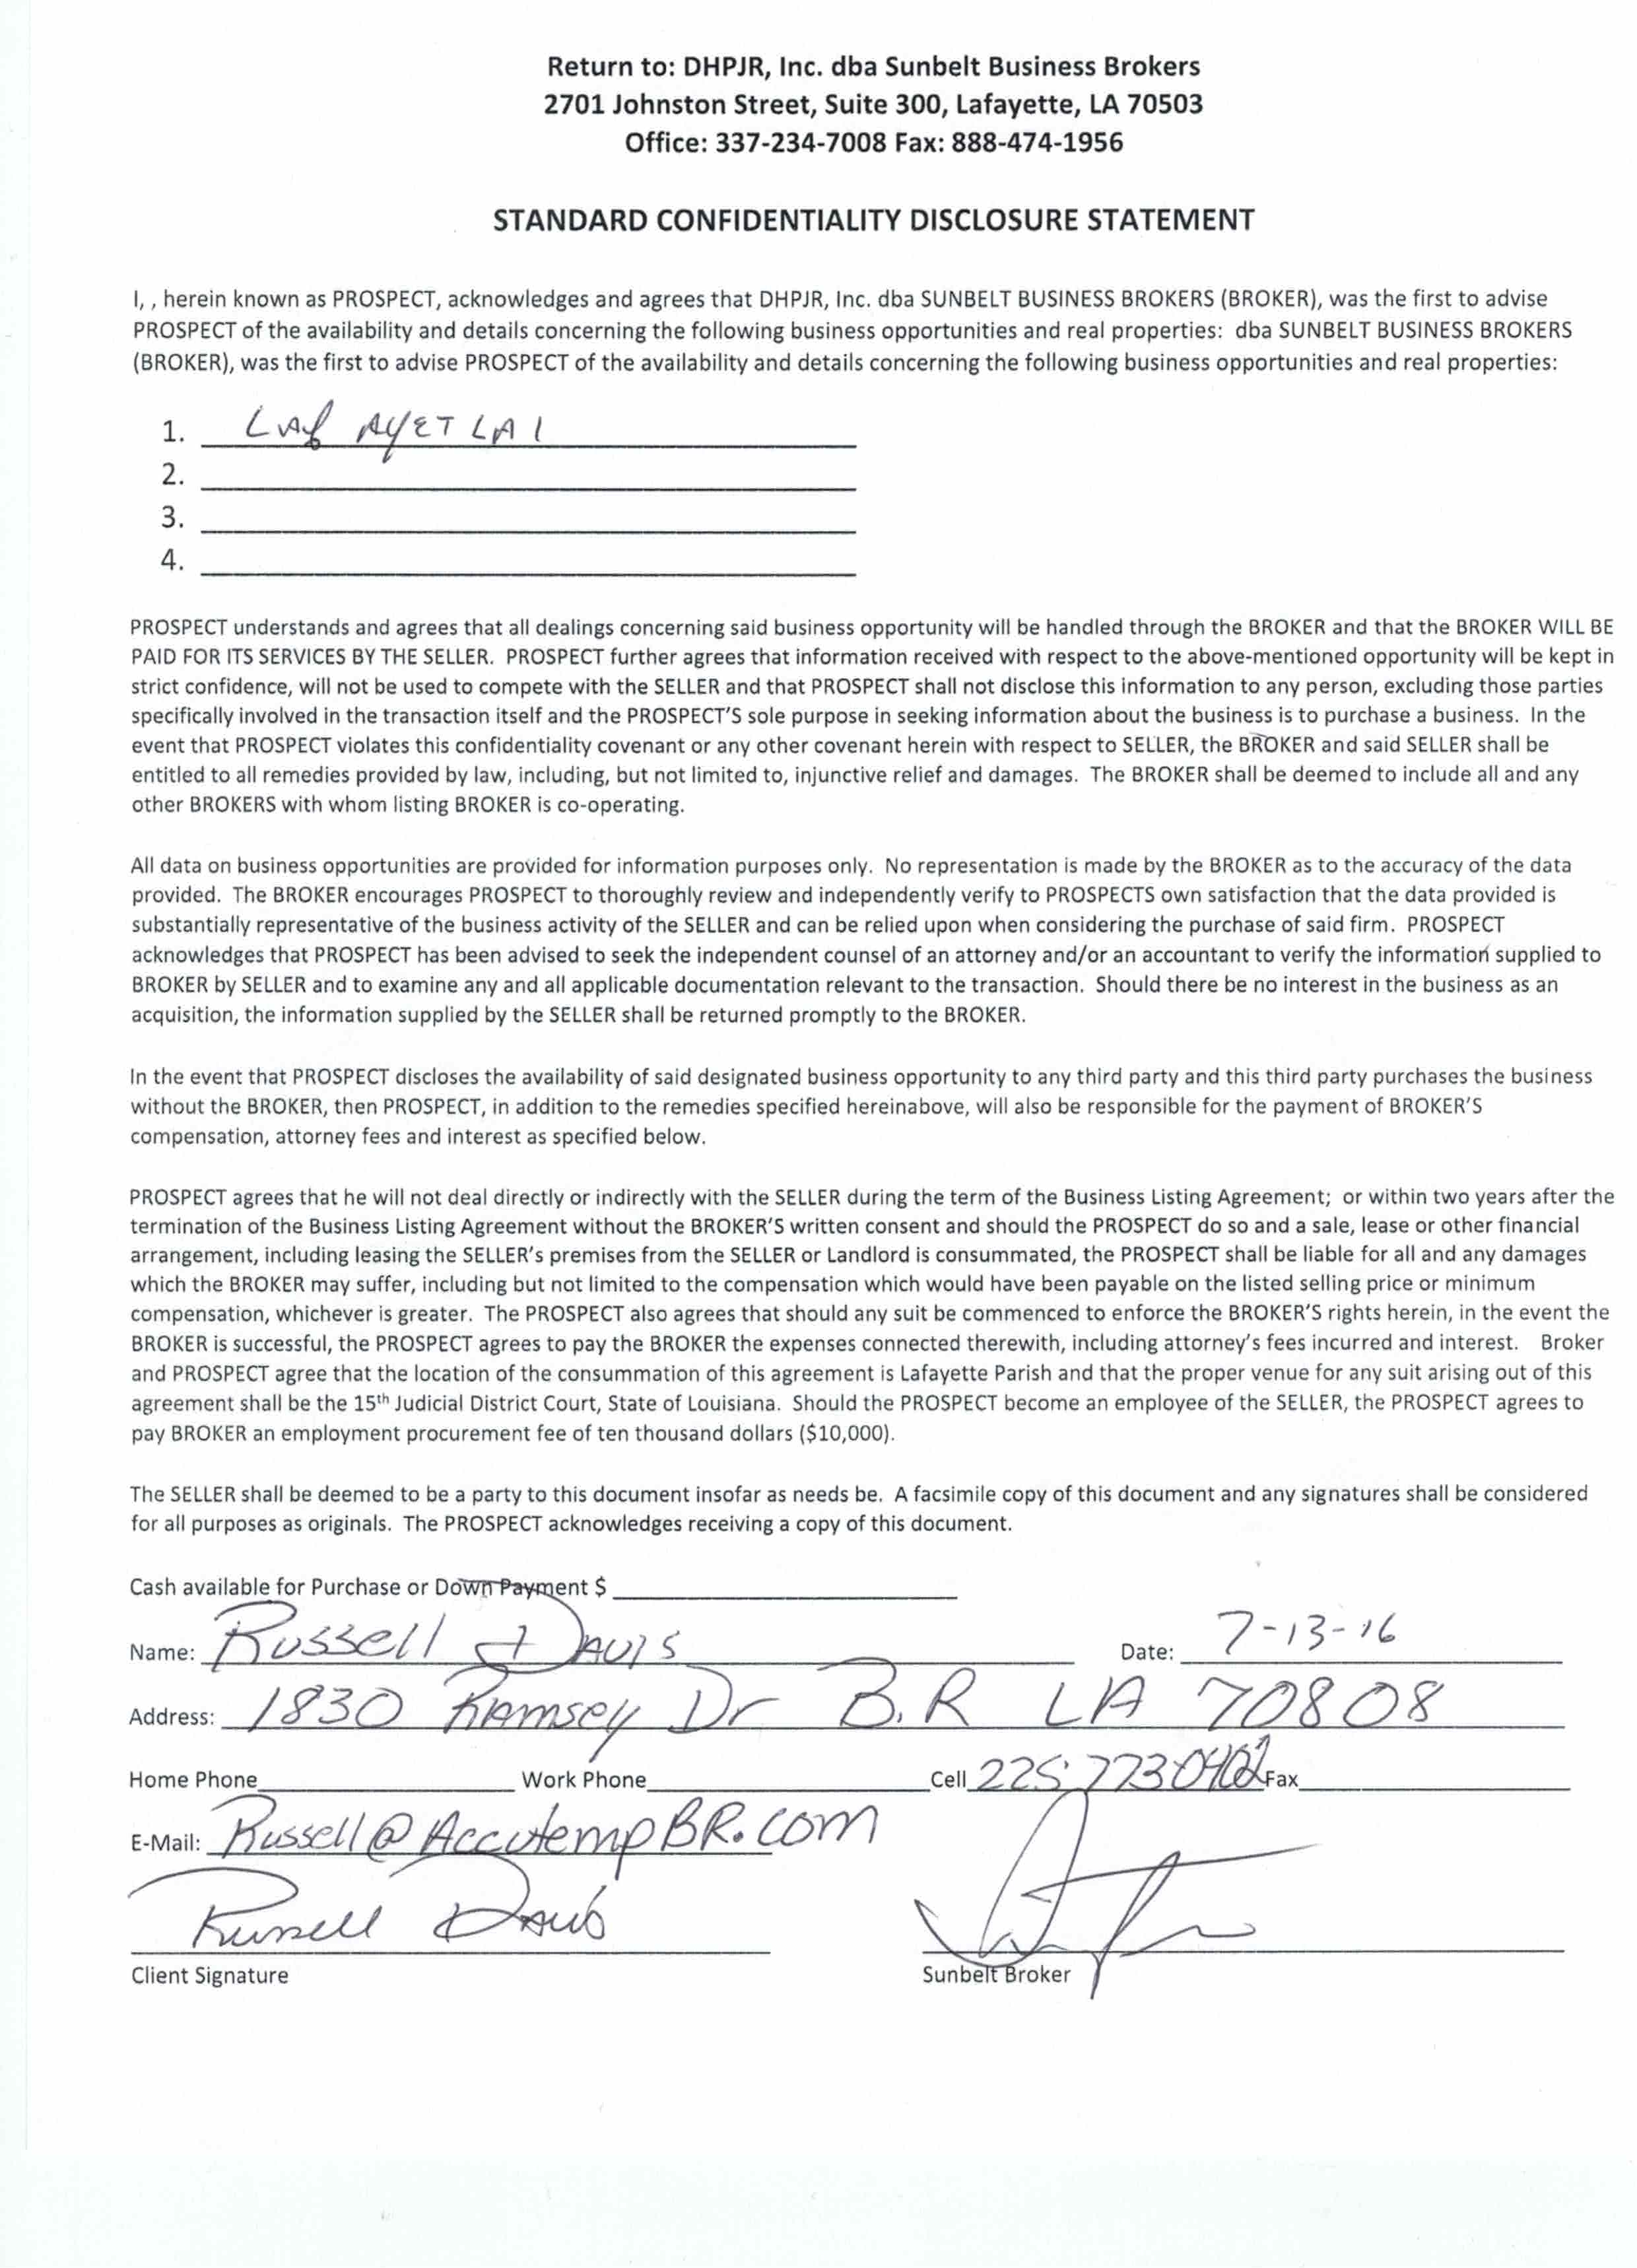 Return to: DHPJR, Inc. dba Sunbelt Business Brokers
2701 Johnston Street, Suite 300, Lafayette, LA 70503
Office: 337-234-7008 Fax: 888-474-1956
STANDARD CONFIDENTIALITY DISCLOSURE STATEMENT
I, , herein known as PROSPECT, acknowledges and agrees that DHPJR, Inc. dba SUNBELT BUSINESS BROKERS (BROKER), was the first to advise
PROSPECT of the availability and details concerning the following business opportunities and real properties: dba SUNBELT BUSINESS BROKERS
(BROKER), was the first to advise PROSPECT of the availability and details concerning the following business opportunities and real properties:
1. LAf AyET LA 1
2.
3.
4.
PROSPECT understands and agrees that all dealings concerning said business opportunity will be handled through the BROKER and that the BROKER WILL BE
PAID FOR ITS SERVICES BY THE SELLER. PROSPECT further agrees that information received with respect to the above-mentioned opportunity will be kept in
strict confidence, will not be used to compete with the SELLER and that PROSPECT shall not disclose this information to any person, excluding those parties
specifically involved in the transaction itself and the PROSPECT'S sole purpose in seeking information about the business is to purchase a business. In the
event that PROSPECT violates this confidentiality covenant or any other covenant herein with respect to SELLER, the BROKER and said SELLER shall be
entitled to all remedies provided by law, including, but not limited to, injunctive relief and damages. The BROKER shall be deemed to include all and any
other BROKERS with whom listing BROKER is co-operating.
All data on business opportunities are provided for information purposes only. No representation is made by the BROKER as to the accuracy of the data
provided. The BROKER encourages PROSPECT to thoroughly review and independently verify to PROSPECTS own satisfaction that the data provided is
substantially representative of the business activity of the SELLER and can be relied upon when considering the purchase of said firm. PROSPECT
acknowledges that PROSPECT has been advised to seek the independent counsel of an attorney and/or an accountant to verify the information supplied to
BROKER by SELLER and to examine any and all applicable documentation relevant to the transaction. Should there be no interest in the business as an
acquisition, the information supplied by the SELLER shall be returned promptly to the BROKER.
In the event that PROSPECT discloses the availability of said designated business opportunity to any third party and this third party purchases the business
without the BROKER, then PROSPECT, in addition to the remedies specified hereinabove, will also be responsible for the payment of BROKER'S
compensation, attorney fees and interest as specified below.
PROSPECT agrees that he will not deal directly or indirectly with the SELLER during the term of the Business Listing Agreement; or within two years after the
termination of the Business Listing Agreement without the BROKER'S written consent and should the PROSPECT do so and a sale, lease or other financial
arrangement, including leasing the SELLER's premises from the SELLER or Landlord is consummated, the PROSPECT shall be liable for all and any damages
which the BROKER may suffer, including but not limited to the compensation which would have been payable on the listed selling price or minimum
compensation, whichever is greater. The PROSPECT also agrees that should any suit be commenced to enforce the BROKER'S rights herein, in the event the
BROKER is successful, the PROSPECT agrees to pay the BROKER the expenses connected therewith, including attorney's fees incurred and interest. Broker
and PROSPECT agree that the location of the consummation of this agreement is Lafayette Parish and that the proper venue for any suit arising out of this
agreement shall be the 15th Judicial District Court, State of Louisiana. Should the PROSPECT become an employee of the SELLER, the PROSPECT agrees to
pay BROKER an employment procurement fee of ten thousand dollars ($10,000).
The SELLER shall be deemed to be a party to this document insofar as needs be. A facsimile copy of this document and any signatures shall be considered
for all purposes as originals. The PROSPECT acknowledges receiving a copy of this document.
Cash available for Purchase or Down Payment $
Name: Russell J Davis Date: 7-13-16
Address: 1830 Ramsey Dr B.R LA 70808
Home Phone Work Phone Cell Fax
E-Mail: Russell@AccutempBR.com
Russell Davis
Client Signature Sunbelt Broker